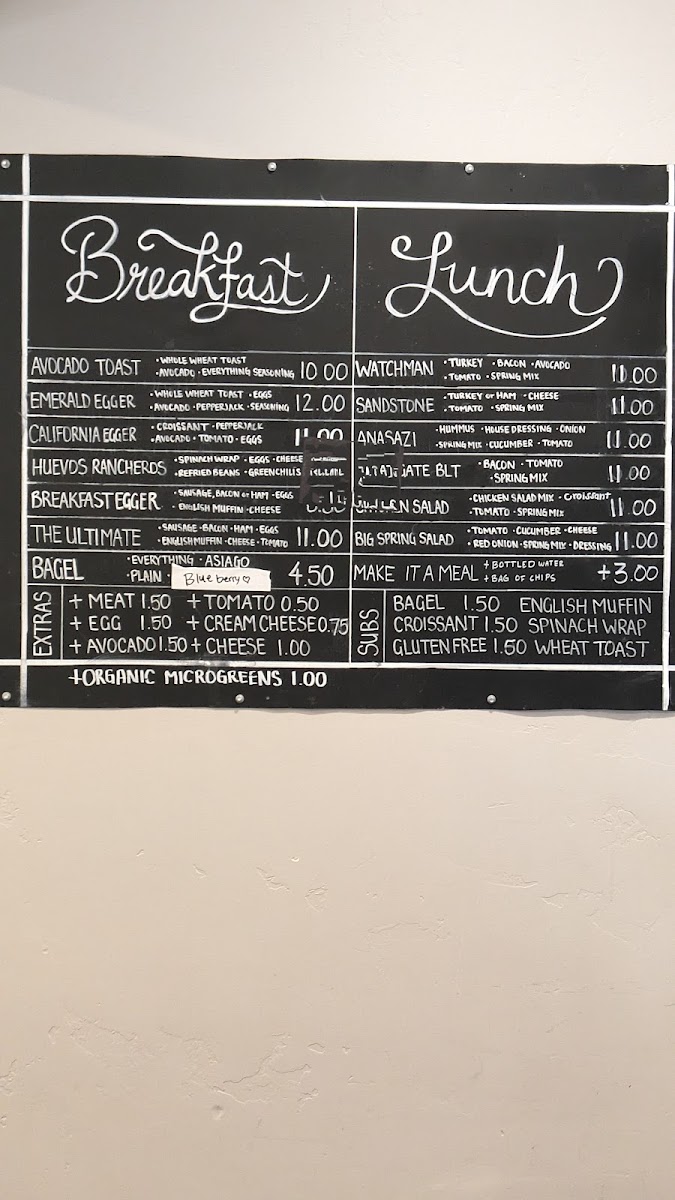 Breakfast
AVOCADO TOAST • WHOLE WHEAT TOAST
• AVOCADO • EVERYTHING SEASONING 10.00
EMERALD EGGER • WHOLE WHEAT TOAST • EGGS
• AVOCADO • PEPPERJACK • SEASONING 12.00
CALIFORNIA EGGER • CROISSANT • PEPPERJACK
• AVOCADO • TOMATO • EGGS 11.00
HUEVOS RANCHEROS • SPINACH WRAP • EGGS • CHEESE
• REFRIED BEANS • GREEN CHILIS
BREAKFAST EGGER • SAUSAGE, BACON or HAM • EGGS
• ENGLISH MUFFIN • CHEESE
THE ULTIMATE • SAUSAGE • BACON • HAM • EGGS
• ENGLISH MUFFIN • CHEESE • TOMATO 11.00
BAGEL • EVERYTHING • ASIAGO
• PLAIN • Blueberry♡ 4.50
EXTRAS
+ MEAT 1.50 + TOMATO 0.50
+ EGG 1.50 + CREAM CHEESE 0.75
+ AVOCADO 1.50 + CHEESE 1.00
+ORGANIC MICROGREENS 1.00
Lunch
WATCHMAN • TURKEY • BACON • AVOCADO
• TOMATO • SPRING MIX 11.00
SANDSTONE • TURKEY or HAM • CHEESE
• TOMATO • SPRING MIX 11.00
ANASAZI • HUMMUS • HOUSE DRESSING • ONION
• SPRING MIX • CUCUMBER • TOMATO 11.00
BLT • BACON • TOMATO
• SPRING MIX 11.00
SALAD • CHICKEN SALAD MIX • Croissant
• TOMATO • SPRING MIX 11.00
BIG SPRING SALAD • TOMATO • CUCUMBER • CHEESE
• RED ONION • SPRING MIX • DRESSING 11.00
MAKE IT A MEAL + BOTTLED WATER
+ BAG OF CHIPS +3.00
SUBS
BAGEL 1.50 ENGLISH MUFFIN
CROISSANT 1.50 SPINACH WRAP
GLUTEN FREE 1.50 WHEAT TOAST